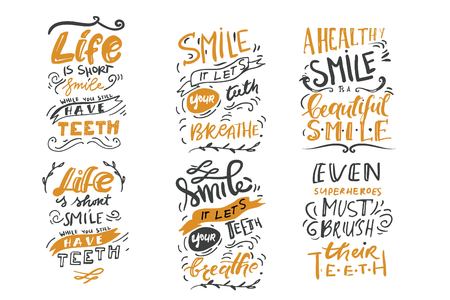 Life
IS SHORT
smile
WHILE YOU STILL
HAVE
TEETH
SMILE
IT LETS
YOUR teeth
BREATHE
A HEALTHY
SMILE
IS A
beautiful
S·M·I·L·E
Life
is short
SMILE
WHILE YOU STILL
HAVE
TEETH
Smile
IT LETS
YOUR TEETH
breathe
EVEN
SUPERHEROES
MUST
BRUSH
their
T·E·E·T·H